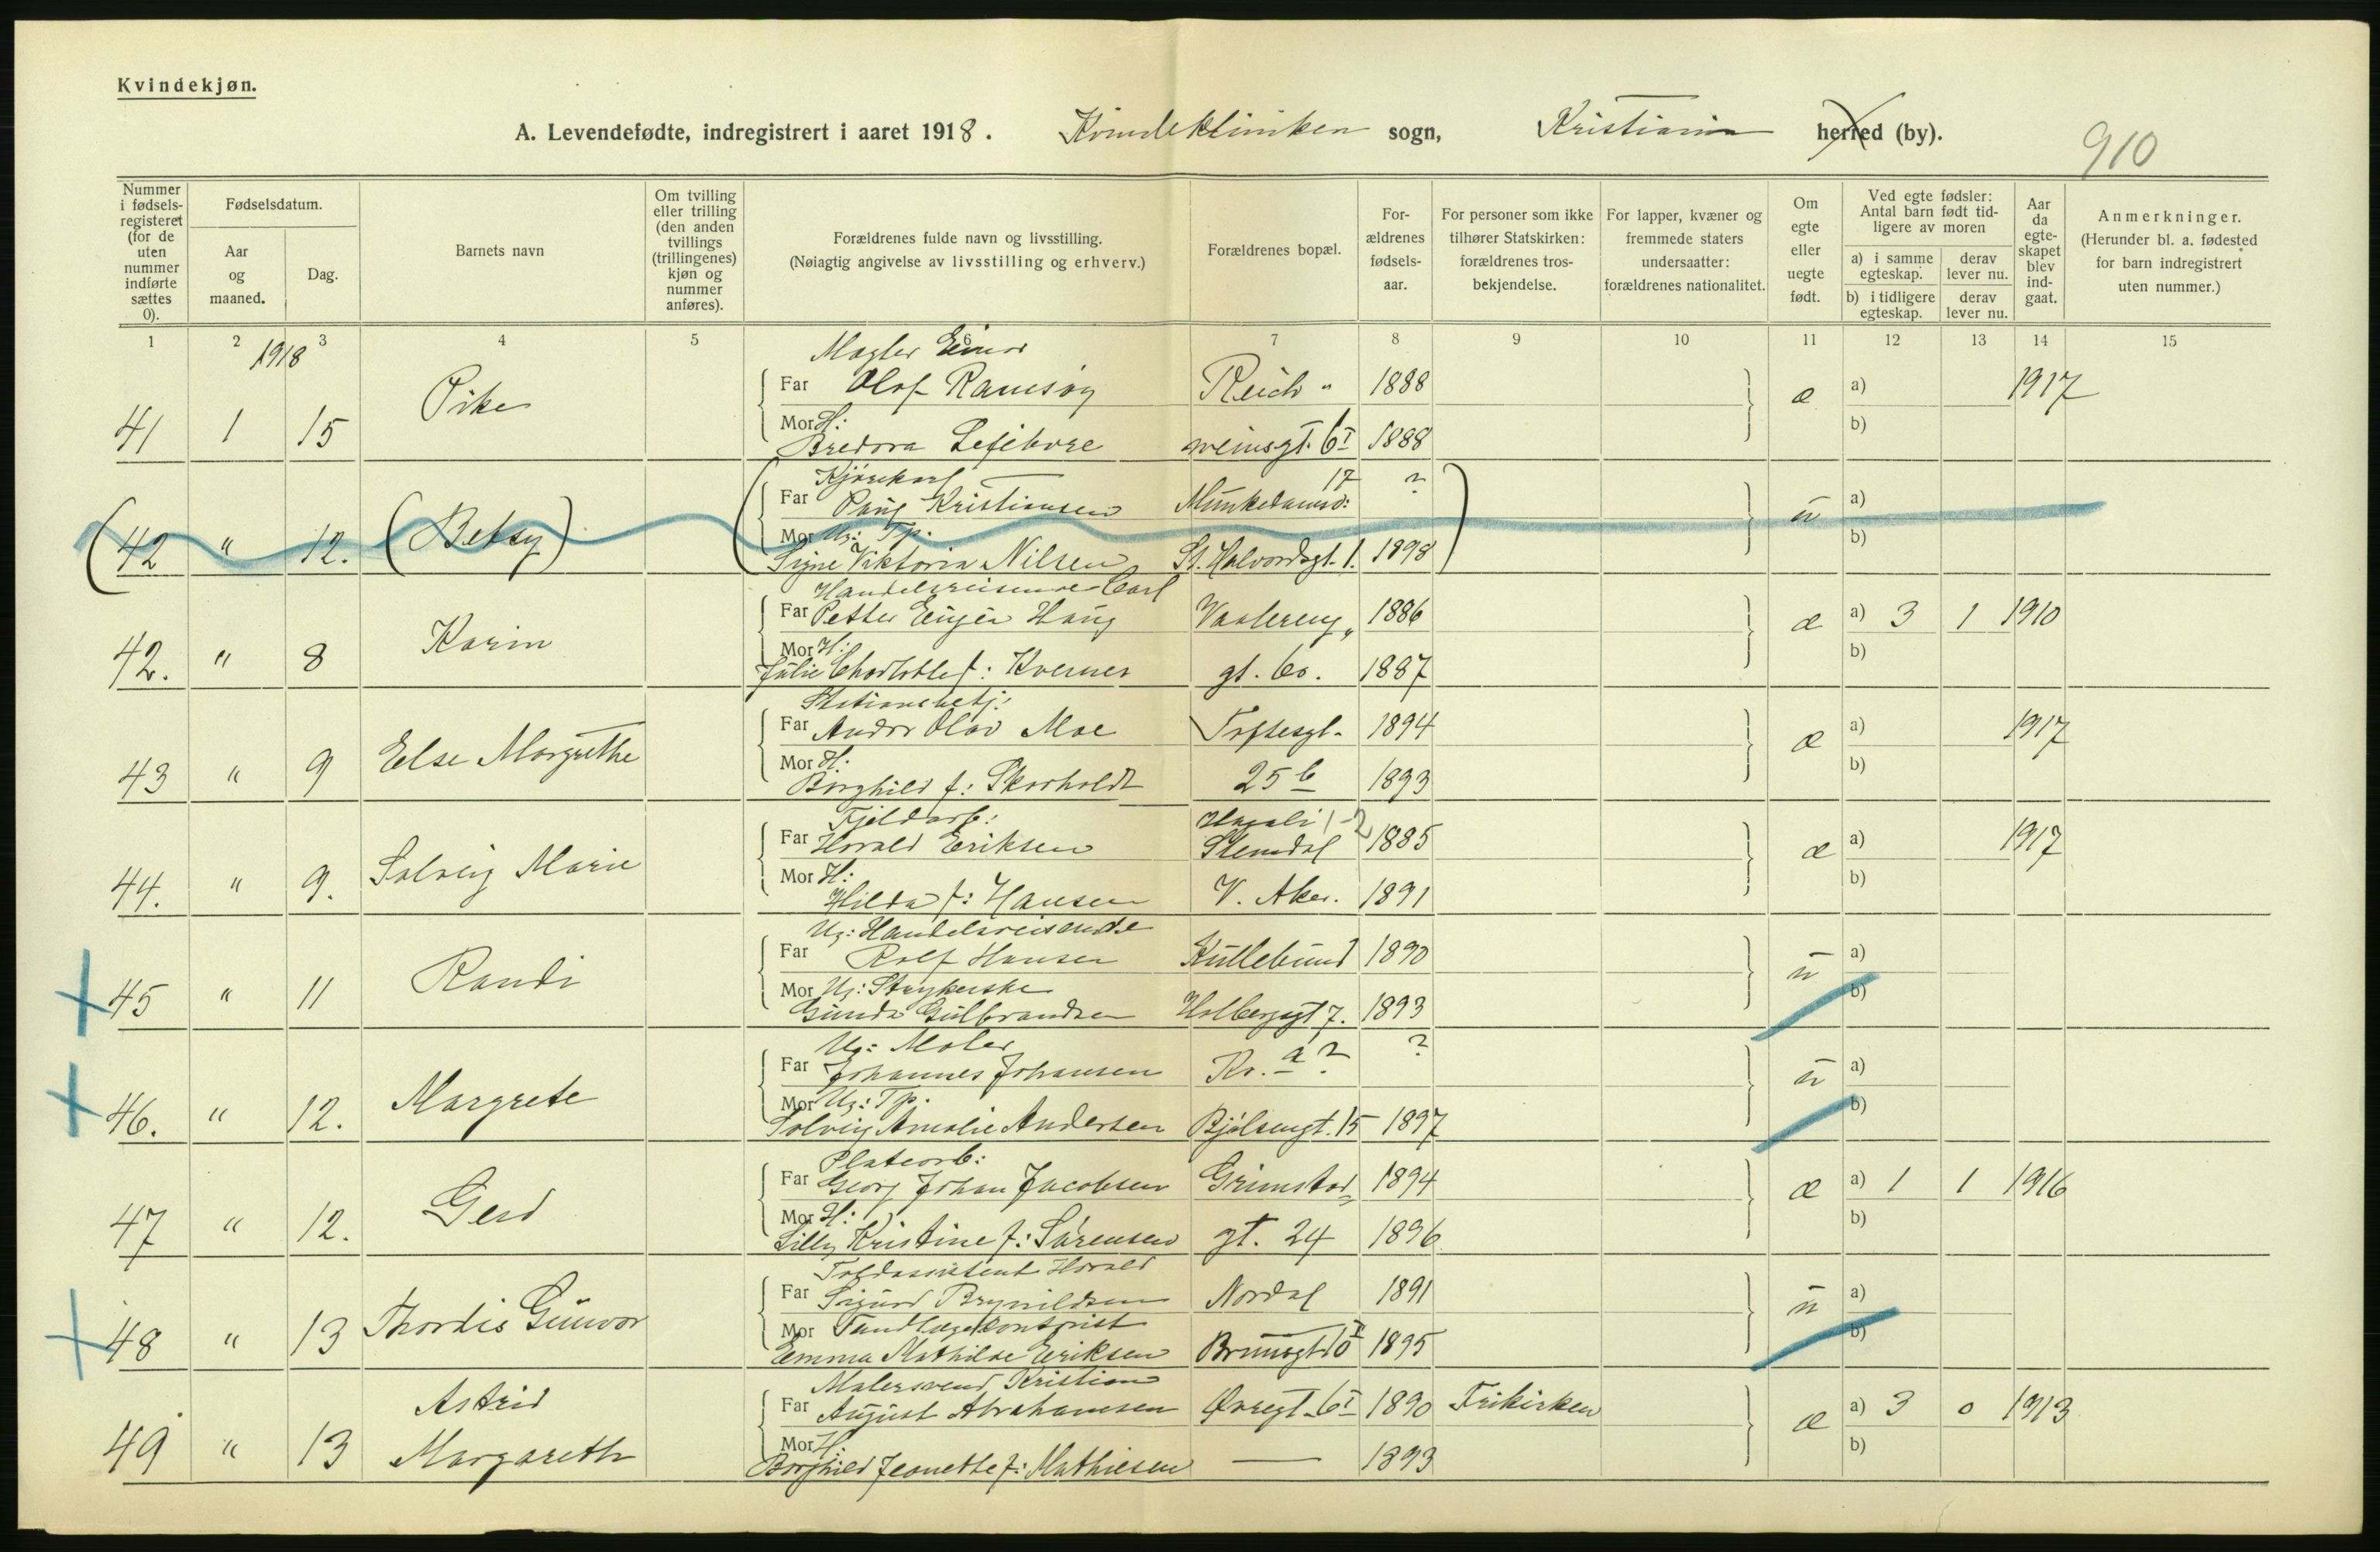 Kvindekjøn.
A. Levendefødte, indregistrert i aaret 1918. Kvindeklinikken sogn, Kristiania herred (by).
910
Nummer i fødsels-registeret (for de uten nummer indførte sættes 0).
Fødselsdatum.
Aar og maaned.
Dag.
Barnets navn
Om tvilling eller trilling (den anden tvillings (trillingenes) kjøn og nummer anføres).
Forældrenes fulde navn og livsstilling.
(Nøiagtig angivelse av livsstilling og erhverv.)
Forældrenes bopæl.
For-ældrenes fødsels-aar.
For personer som ikke tilhører Statskirken: forældrenes tros-bekjendelse.
For lapper, kvæner og fremmede staters undersaatter: forældrenes nationalitet.
Om egte eller uegte født.
Ved egte fødsler: Antal barn født tid-ligere av moren
a) i samme egteskap.
derav lever nu.
b) i tidligere egteskap.
derav lever nu.
Aar da egte-skapet blev ind-gaat.
Anmerkninger.
(Herunder bl. a. fødested for barn indregistrert uten nummer.)
1 2 3 4 5 6 7 8 9 10 11 12 13 14 15
1918
Mægler Einar
Far Olaf Ramsøy Reich- 1888 a) 1917
41 1 15 Pike æ
Mor H: b)
Bredora Lefebvre weinsgt. 6 I 1888
Kjørekarl 17 ?
Far Paug Kristiansen Munkedamsv: a)
(42 " 12. (Betsy) u
Mor Ug: Tp. b)
Signe Viktoria Nilsen St. Halvordsgt. 1. 1898
Handelsreisende Carl
Far Petter Eugen Haug Vaalereng„ 1886 a) 3 1 1910
42. " 8 Karin æ
Mor H: b)
Julie Charlotte f: Kverner gt. 60. 1887
Stationsbetj:
Far Andor Olav Moe Toftesgt. 1894 a) 1917
43 " 9 Else Margrethe æ
Mor H: b)
Borghild f: Skorholdt 25 b 1893
Fjeldarb: 1-2
Far Harald Eriksen Slemdal 1885 a) 1917
44. " 9. Solveig Marie æ
Mor H: b)
Hilda f: Hansen V. Aker. 1891
Ug: Handelsreisende
Far Rolf Hansen Kullebund 1890 a)
45 " 11 Randi u
Mor Ug: Strykerske b)
Gunda Gulbrandsen Holbergsgt 7. 1893
Ug: Maler
Far Johannes Johansen Kr. a ? ? a)
46. " 12. Margrete u
Mor Ug: Tp. b)
Solveig Amalie Andersen Bjølsengt. 15 1897
Platearb:
Far Georg Johan Jacobsen Grimstad„ 1894 a) 1 1 1916
47 " 12. Gerd æ
Mor H: b)
Lilly Kristine f: Sørensen gt. 24 1896
Toldassistent Harald
Far Sigurd Brynildsen Nordal 1891 a)
48 " 13 Thordis Gunvor u
Mor Tandlægeassist b)
Emma Mathilde Eriksen Brunsgt 10 II 1895
Malersvend Kristian
Far August Abrahamsen Øvregt. 6 I 1890 Frikirken a) 3 0 1913
49 " 13 Astrid Margareth æ
Mor H: b)
Borghild Jeanette f: Mathiesen — 1893